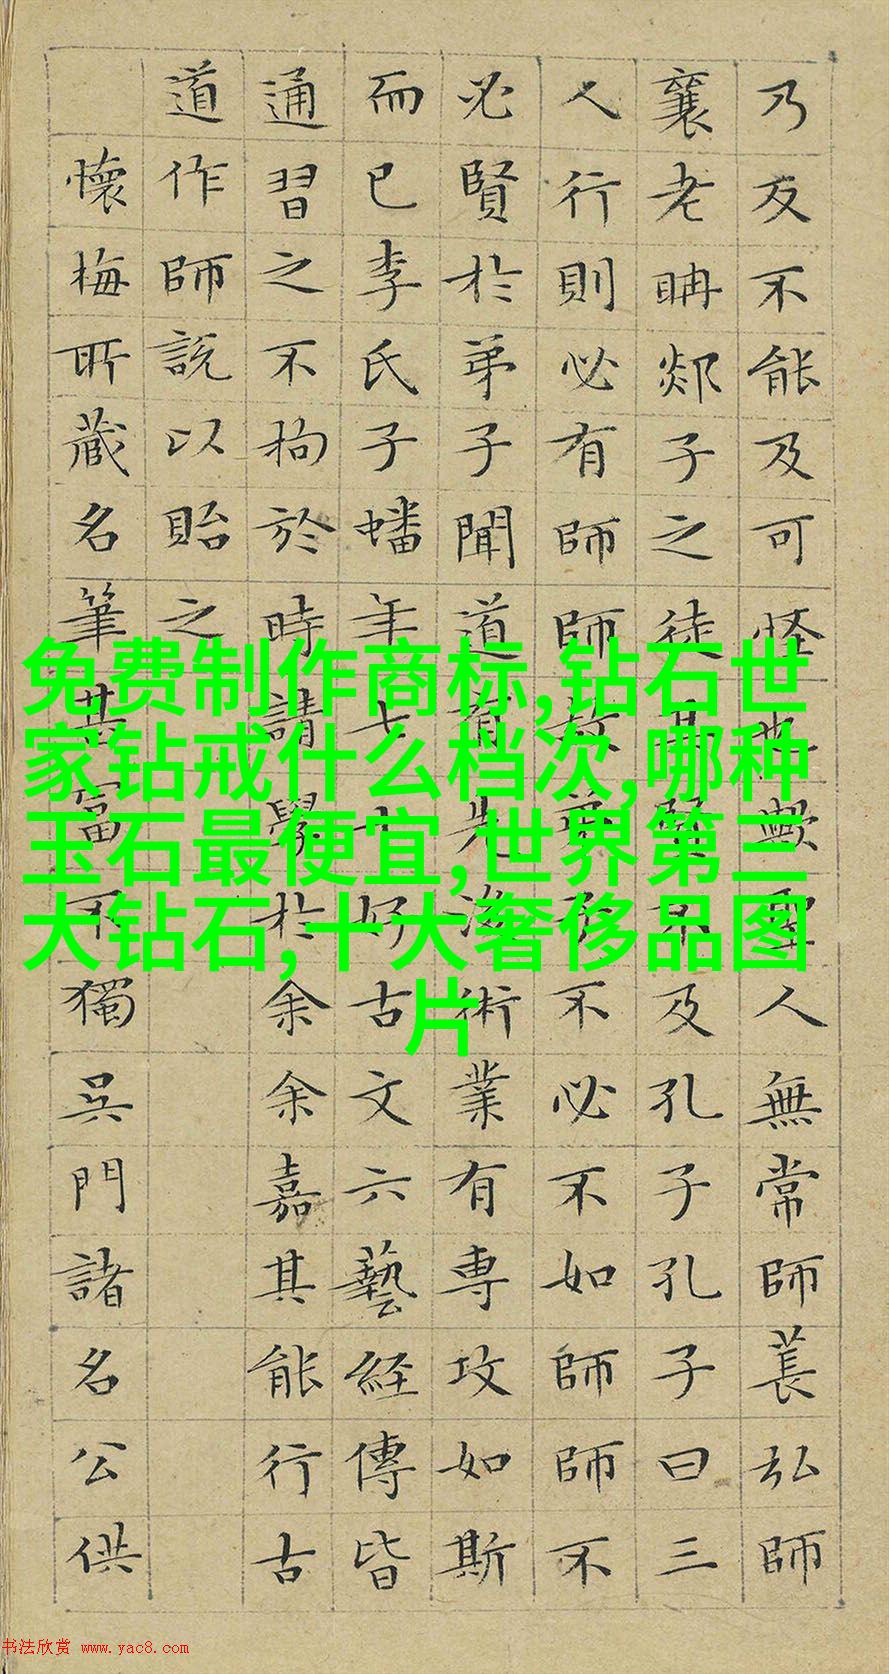 乃反不能及可怪也歟聖人無常師萇弘師
襄老聃郯子之徒其賢不及孔子孔子曰三
人行則必有師師故弟子不必不如師師不
必賢於弟子聞道有先後術業有專攻如斯
而已李氏子蟠年七十好古文六藝經傳皆
通習之不拘於時請學於余余嘉其能行古
道作師說以貽之
懷梅所藏名筆甚富不獨吳門諸名公供
免费制作商标,钻石世
家钻戒什么档次,哪种
玉石最便宜,世界第三
大钻石,十大奢侈品图
片
书法欣赏 www.yac8.com